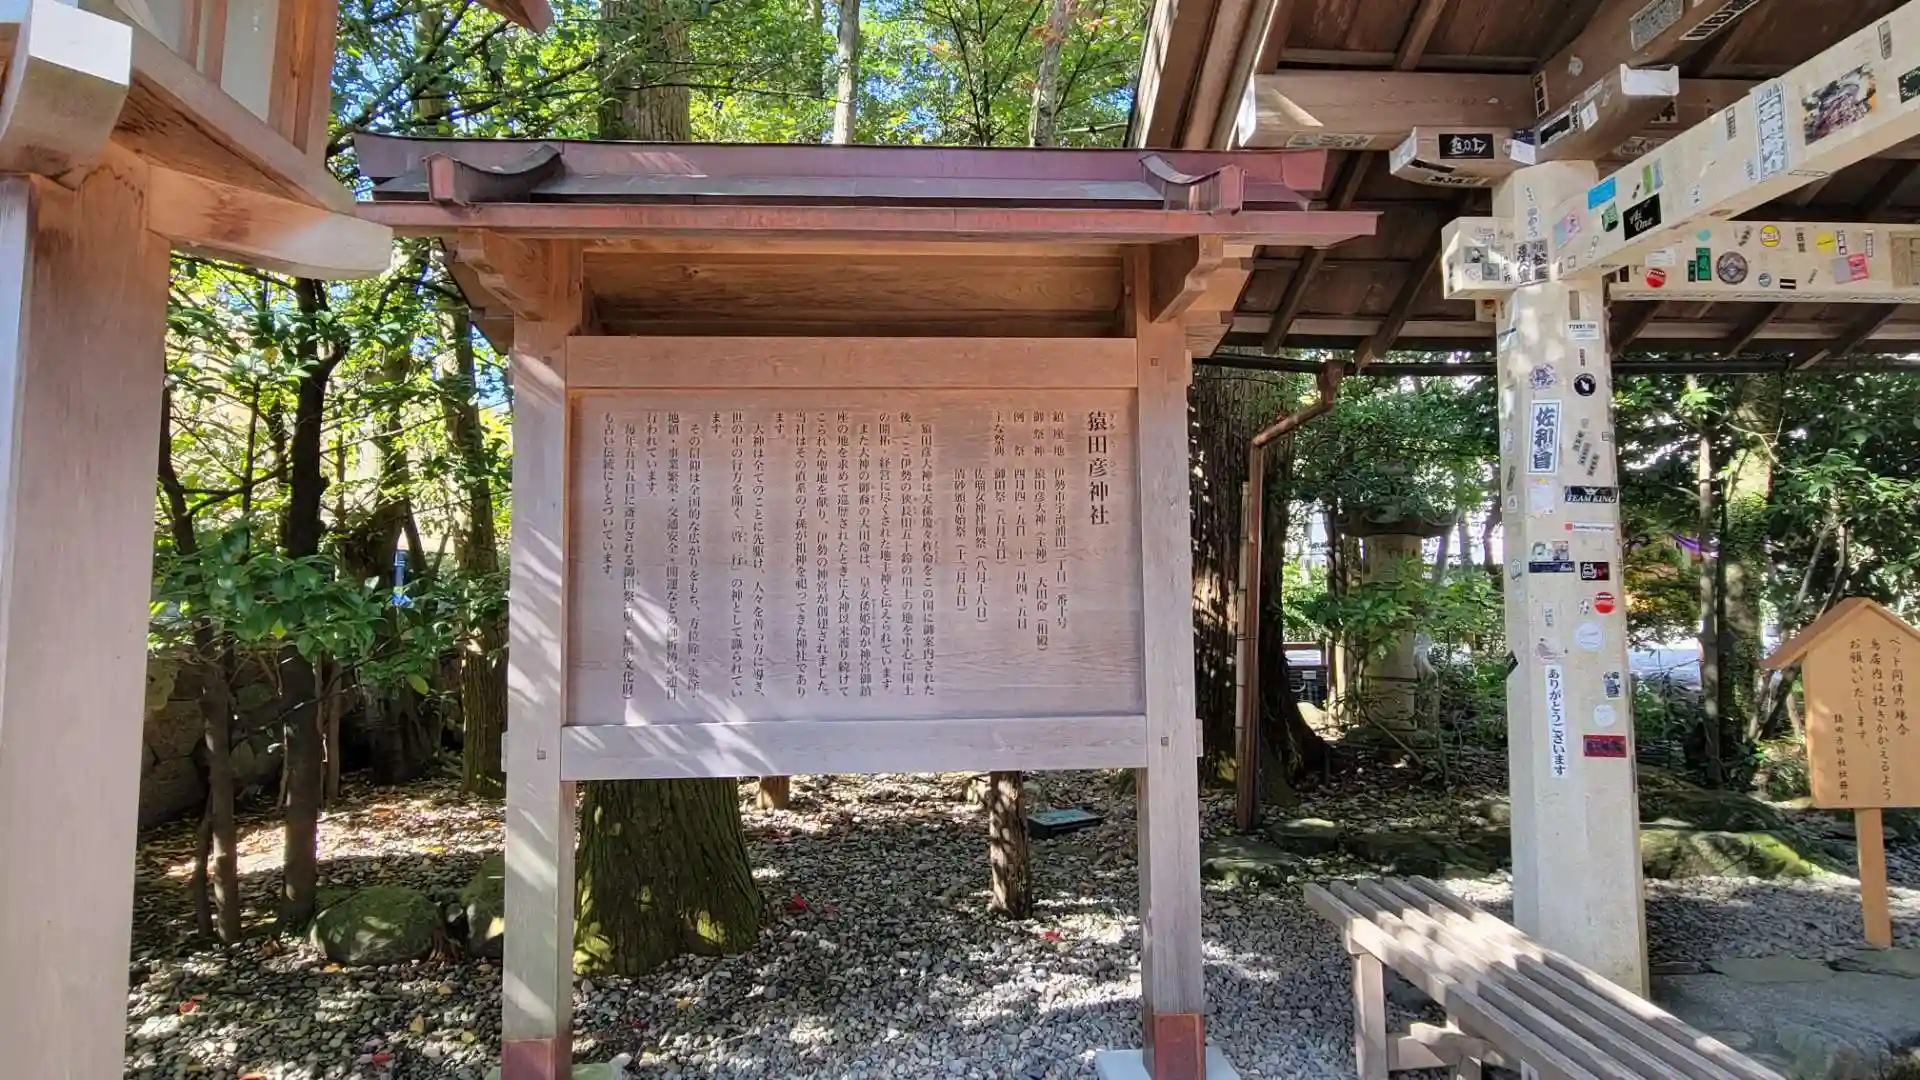 猿田彦神社
鎮座地 伊勢市宇治浦田二丁目一番十号
御祭神 猿田彦大神(主神) 大田命(相殿)
例祭 四月四・五日 十一月四・五日
主な祭典 御田祭(五月五日)
佐瑠女神社例祭(八月十八日)
清砂頒布始祭(十二月五日)
猿田彦大神は天孫瓊々杵命をこの国に御案内された
後、ここ伊勢の狭長田五十鈴の川上の地を中心に国土
の開拓・経営に尽くされた地主神と伝えられています。
また大神の御裔の大田命は、皇女倭姫命が神宮御鎮
座の地を求めて巡歴されたときに大神以来護り続けて
こられた聖地を献り、伊勢の神宮が創建されました。
当社はその直系の子孫が祖神を祀ってきた神社であり
ます。
大神は全てのことに先駆け、人々を善い方に導き、
世の中の行方を開く「啓行」の神として識られてい
ます。
その信仰は全国的な広がりをもち、方位除・災除・
地鎮・事業繁栄・交通安全・開運などの御祈祷が連日
行われています。
毎年五月五日に斎行される御田祭(県・無形文化財)
も古い伝統にもとづいています。
佐和會
TEAM KING
ありがとうございます
All One
ペット同伴の場合
鳥居内は抱きかかえるよう
お願いいたします。
猿田彦神社社務所